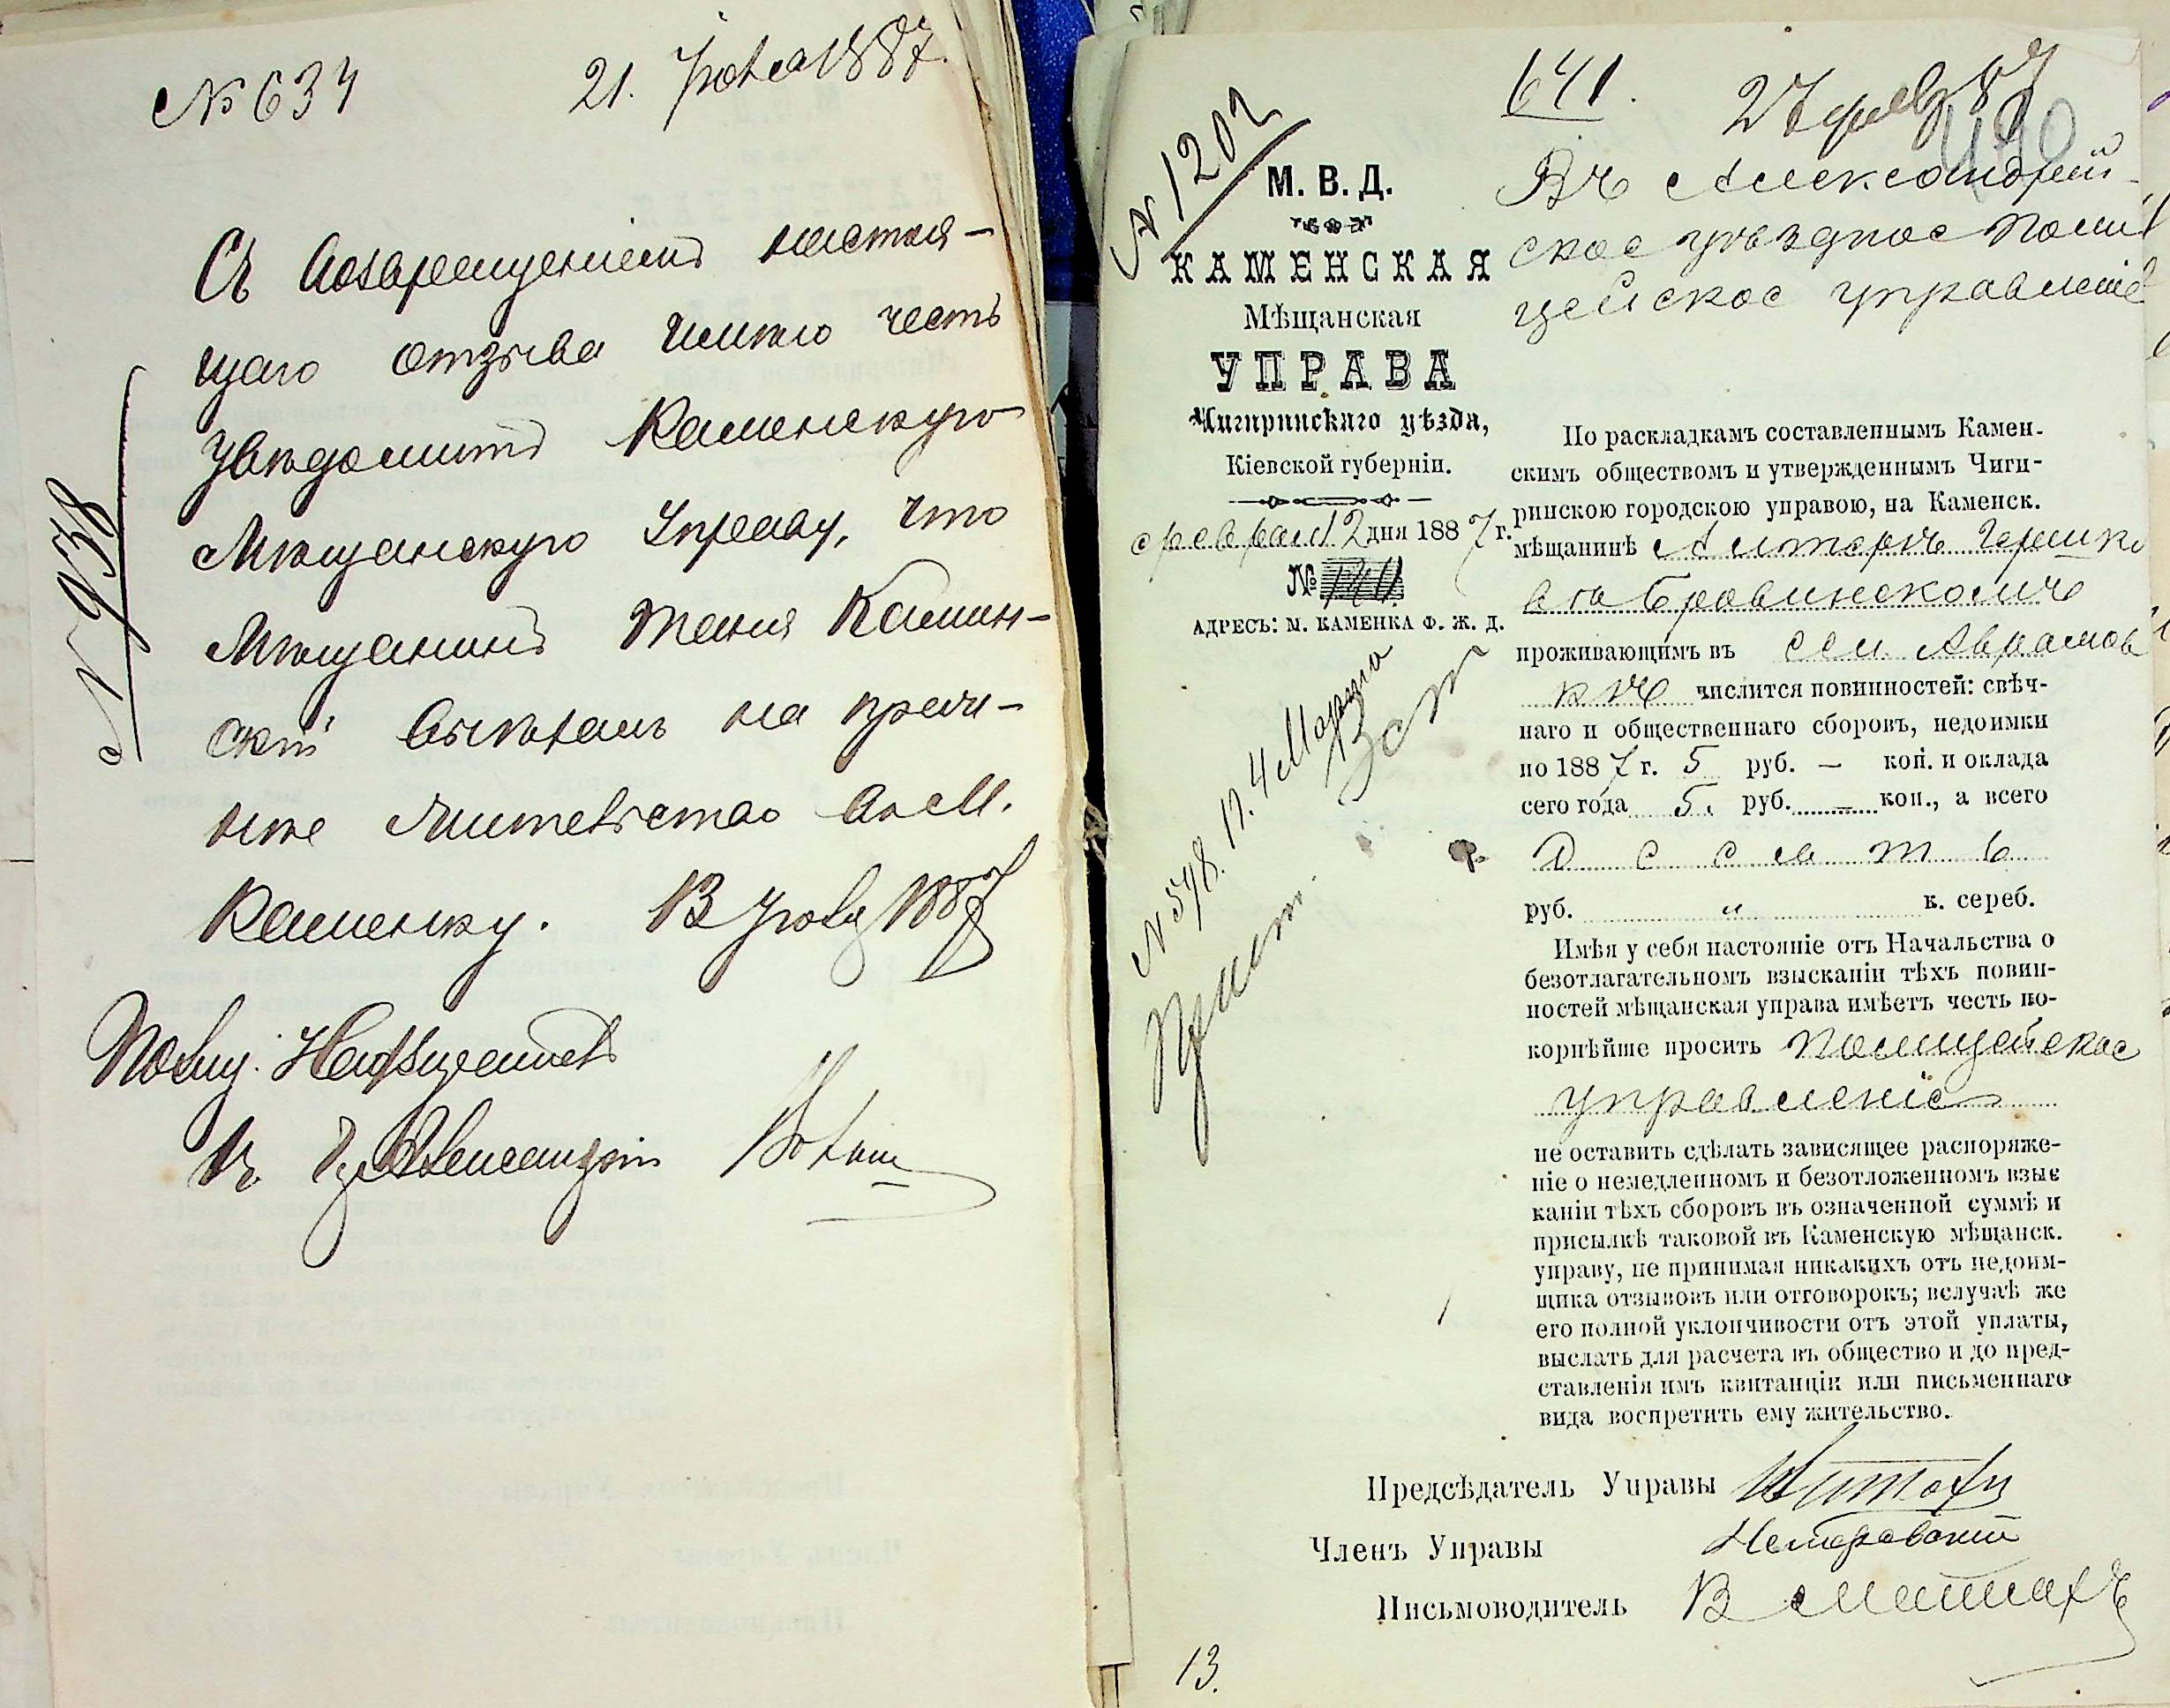 № 634 21. Іюля 1887.
Съ возвращеніемъ настоя-
щаго отзыва имѣю честь
увѣдомить Каменскую
Мѣщанскую Управу, что
Мѣщанинъ Камин-
скій выѣхалъ на преж-
нее жительство въ М.
Каменку. 13 Іюля 1887
№ 938
Полиц. Надзиратель
въ г. Александріи
641.
27 февр 87
440
№ 1202
М. В. Д.
КАМЕНСКАЯ
Мѣщанская
УПРАВА
Чигиринскаго уѣзда,
Кіевской губерніи.
февраля 12 дня 1887 г.
№
АДРЕСЪ: М. КАМЕНКА Ф. Ж. Д.
№ 548. п. 4 Марта
Въ Александрій-
ское уѣздное Поли
цейское управленіе
По раскладкамъ составленнымъ Камен-
скимъ обществомъ и утвержденнымъ Чиги-
ринскою городскою управою, на Каменск.
мѣщанинѣ Алтеръ Гершко
вѣ Бравинскомъ
проживающимъ въ сел. Аврамов
кѣ числится повинностей: свѣч-
наго и общественнаго сборовъ, недоимки
по 1887 г. 5 руб. — коп. и оклада
сего года 5. руб. — коп., а всего
Десять
руб. „ к. сереб.
Имѣя у себя настояніе отъ Начальства о
безотлагательномъ взысканіи тѣхъ повин-
ностей мѣщанская управа имѣетъ честь по-
корнѣйше просить Полицейское
управленіе
не оставить сдѣлать зависящее распоряже-
ніе о немедленномъ и безотложенномъ взыс
каніи тѣхъ сборовъ въ означенной суммѣ и
присылкѣ таковой въ Каменскую мѣщанск.
управу, не принимая никакихъ отъ недоим-
щика отзывовъ или отговорокъ; вслучаѣ же
его полной уклончивости отъ этой уплаты,
выслать для расчета въ общество и до пред-
ставленія имъ квитанціи или письменнаго
вида воспретить ему жительство.
Предсѣдатель Управы
Членъ Управы
Письмоводитель В
13.